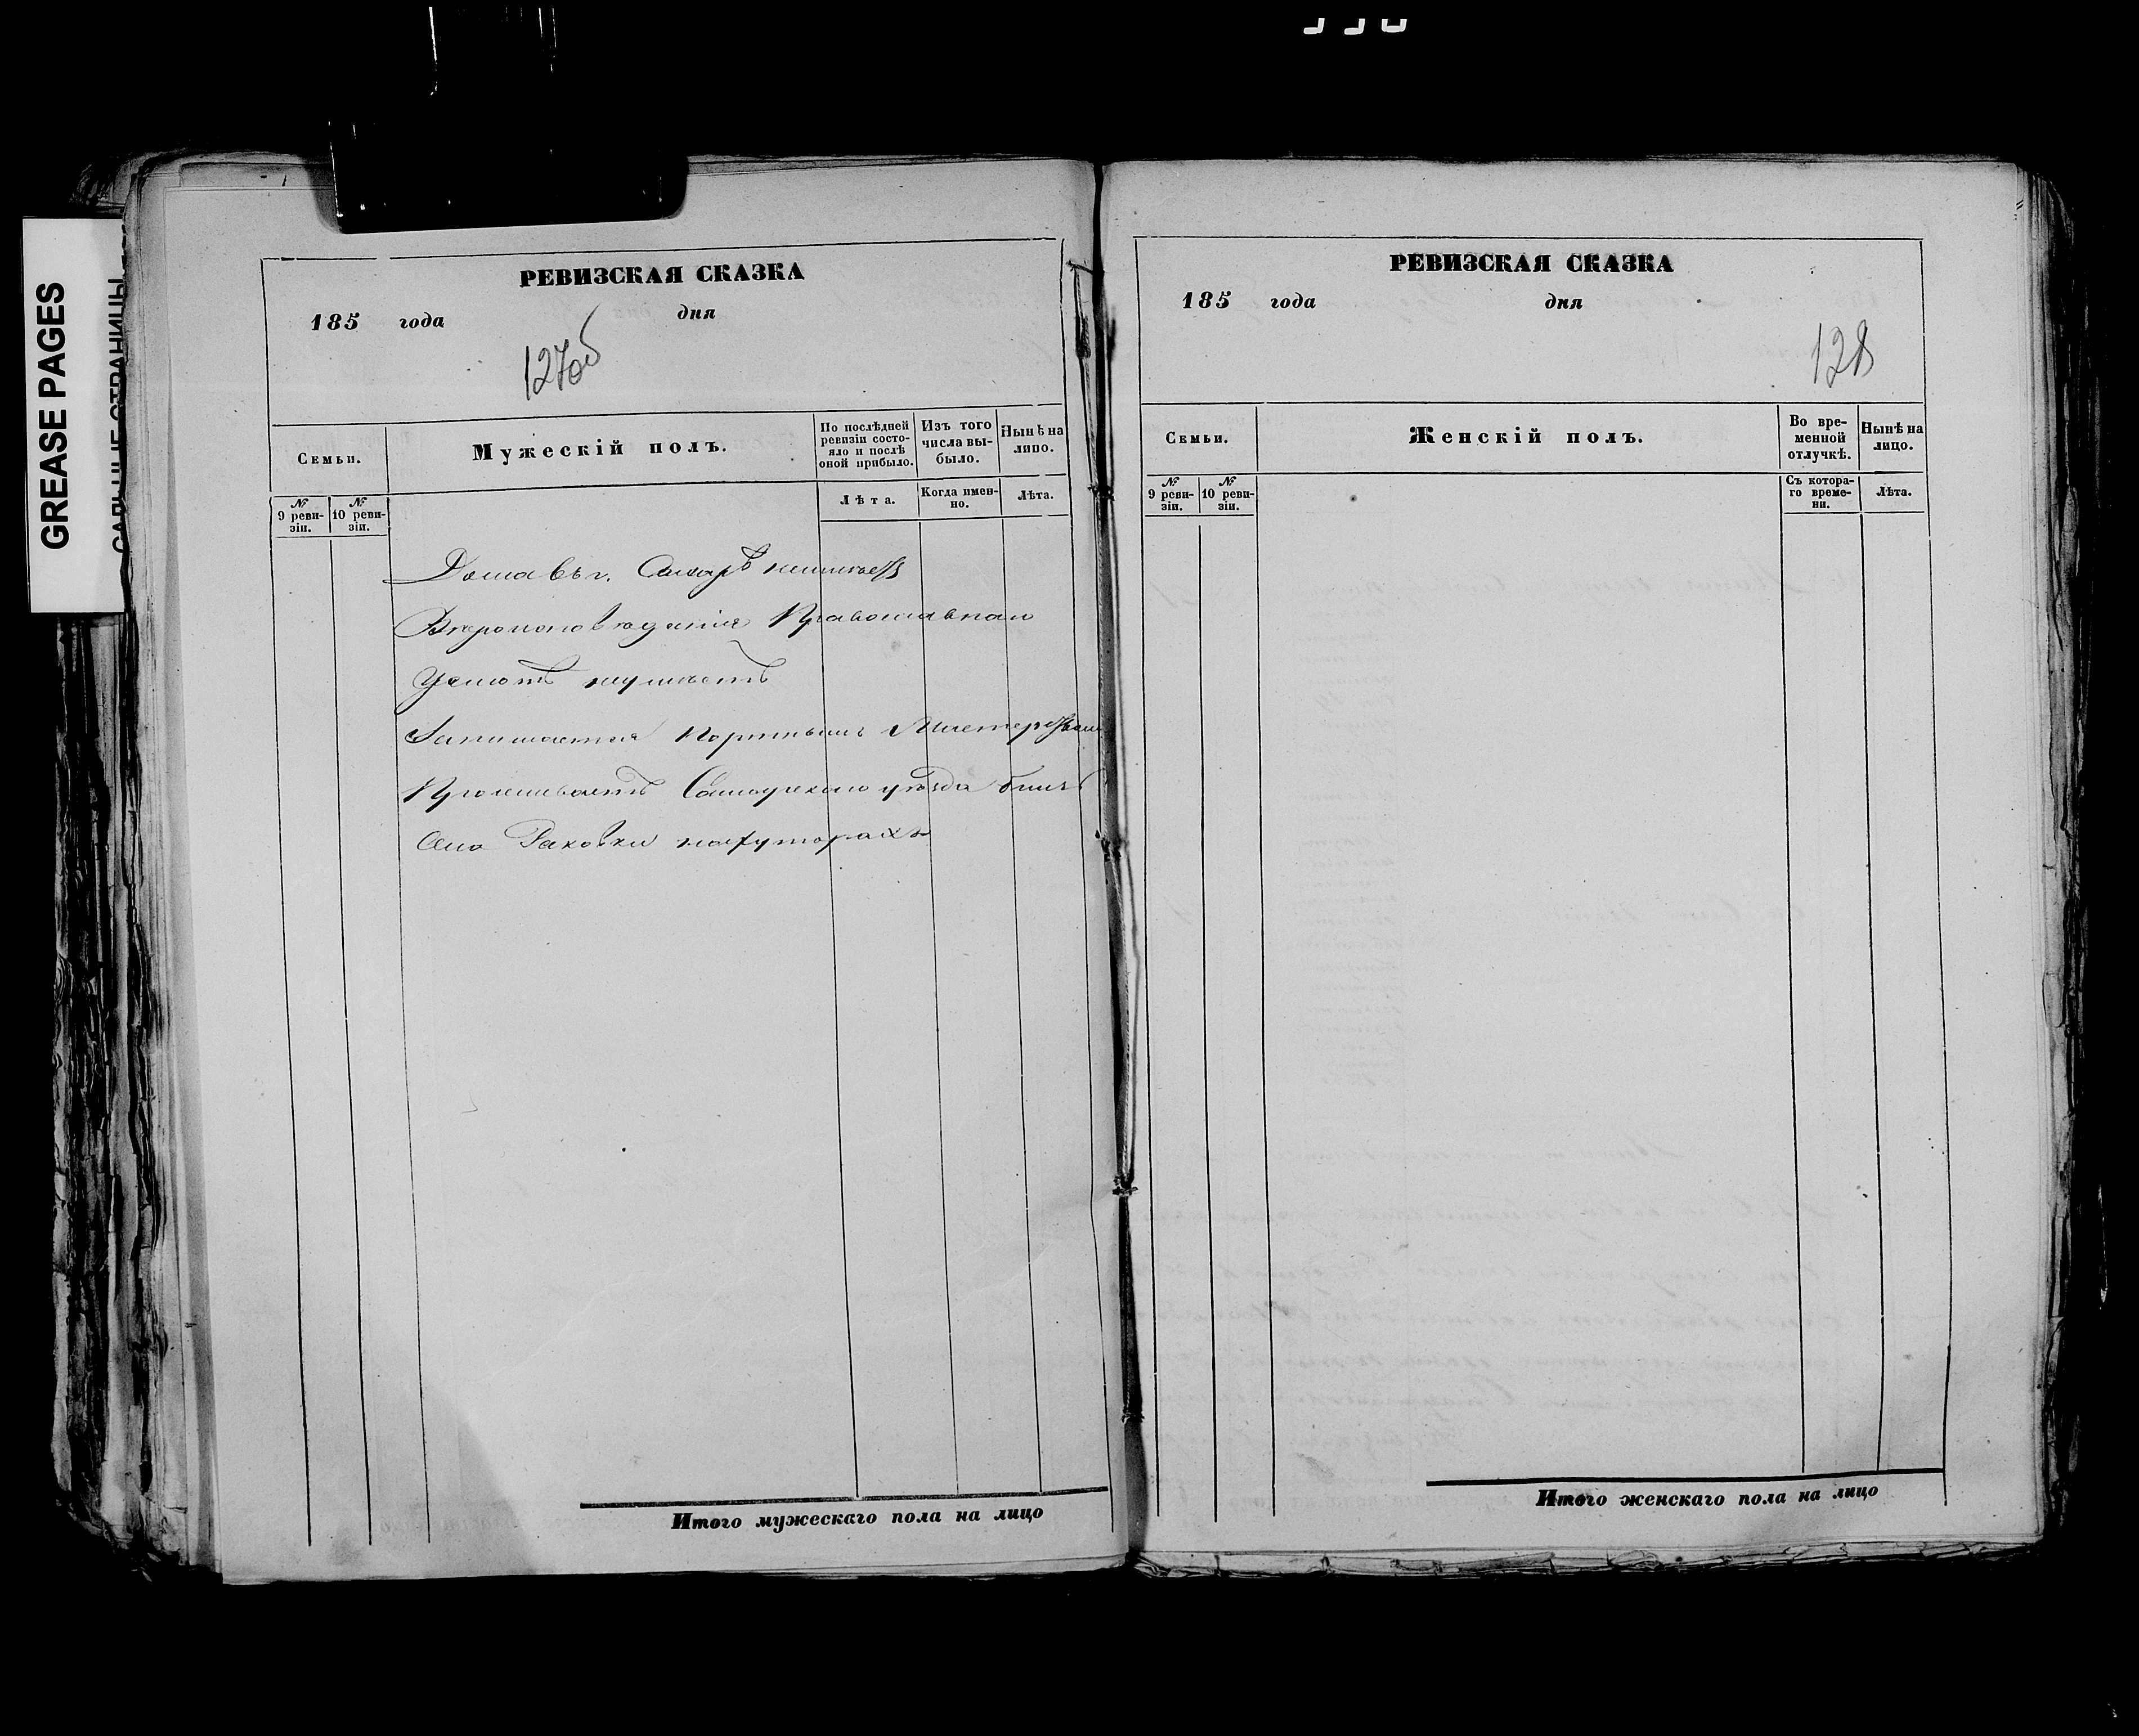 GREASE PAGES
РЕВИЗСКАЯ СКАЗКА
185 года дня
127об
Семьи.
Мужескій полъ.
По послѣдней ревизіи состо-
яло и послѣ оной прибыло.
Изъ того числа вы-
было.
Нынѣ на лицо.
№ 9 реви-
зіи.
№ 10 реви-
зіи.
Лѣта.
Когда имен-
но.
Лѣта.
Дома въ г. Самарѣ неимѣетъ
Вѣроисповѣданія Православнаго
Грамотѣ неумѣетъ
Занимается Портнымъ Мастерствомъ
Проживаетъ Самарскаго уѣзда близь
Села Раковки нахуторахъ
Итого мужескаго пола на лицо
РЕВИЗСКАЯ СКАЗКА
185 года дня
128
Семьи.
Женскій полъ.
Во вре-
менной
отлучкѣ.
Нынѣ на
лицо.
№ 9 реви-
зіи.
№ 10 реви-
зіи.
Съ котора-
го време-
ни.
Лѣта.
Итого женскаго пола на лицо